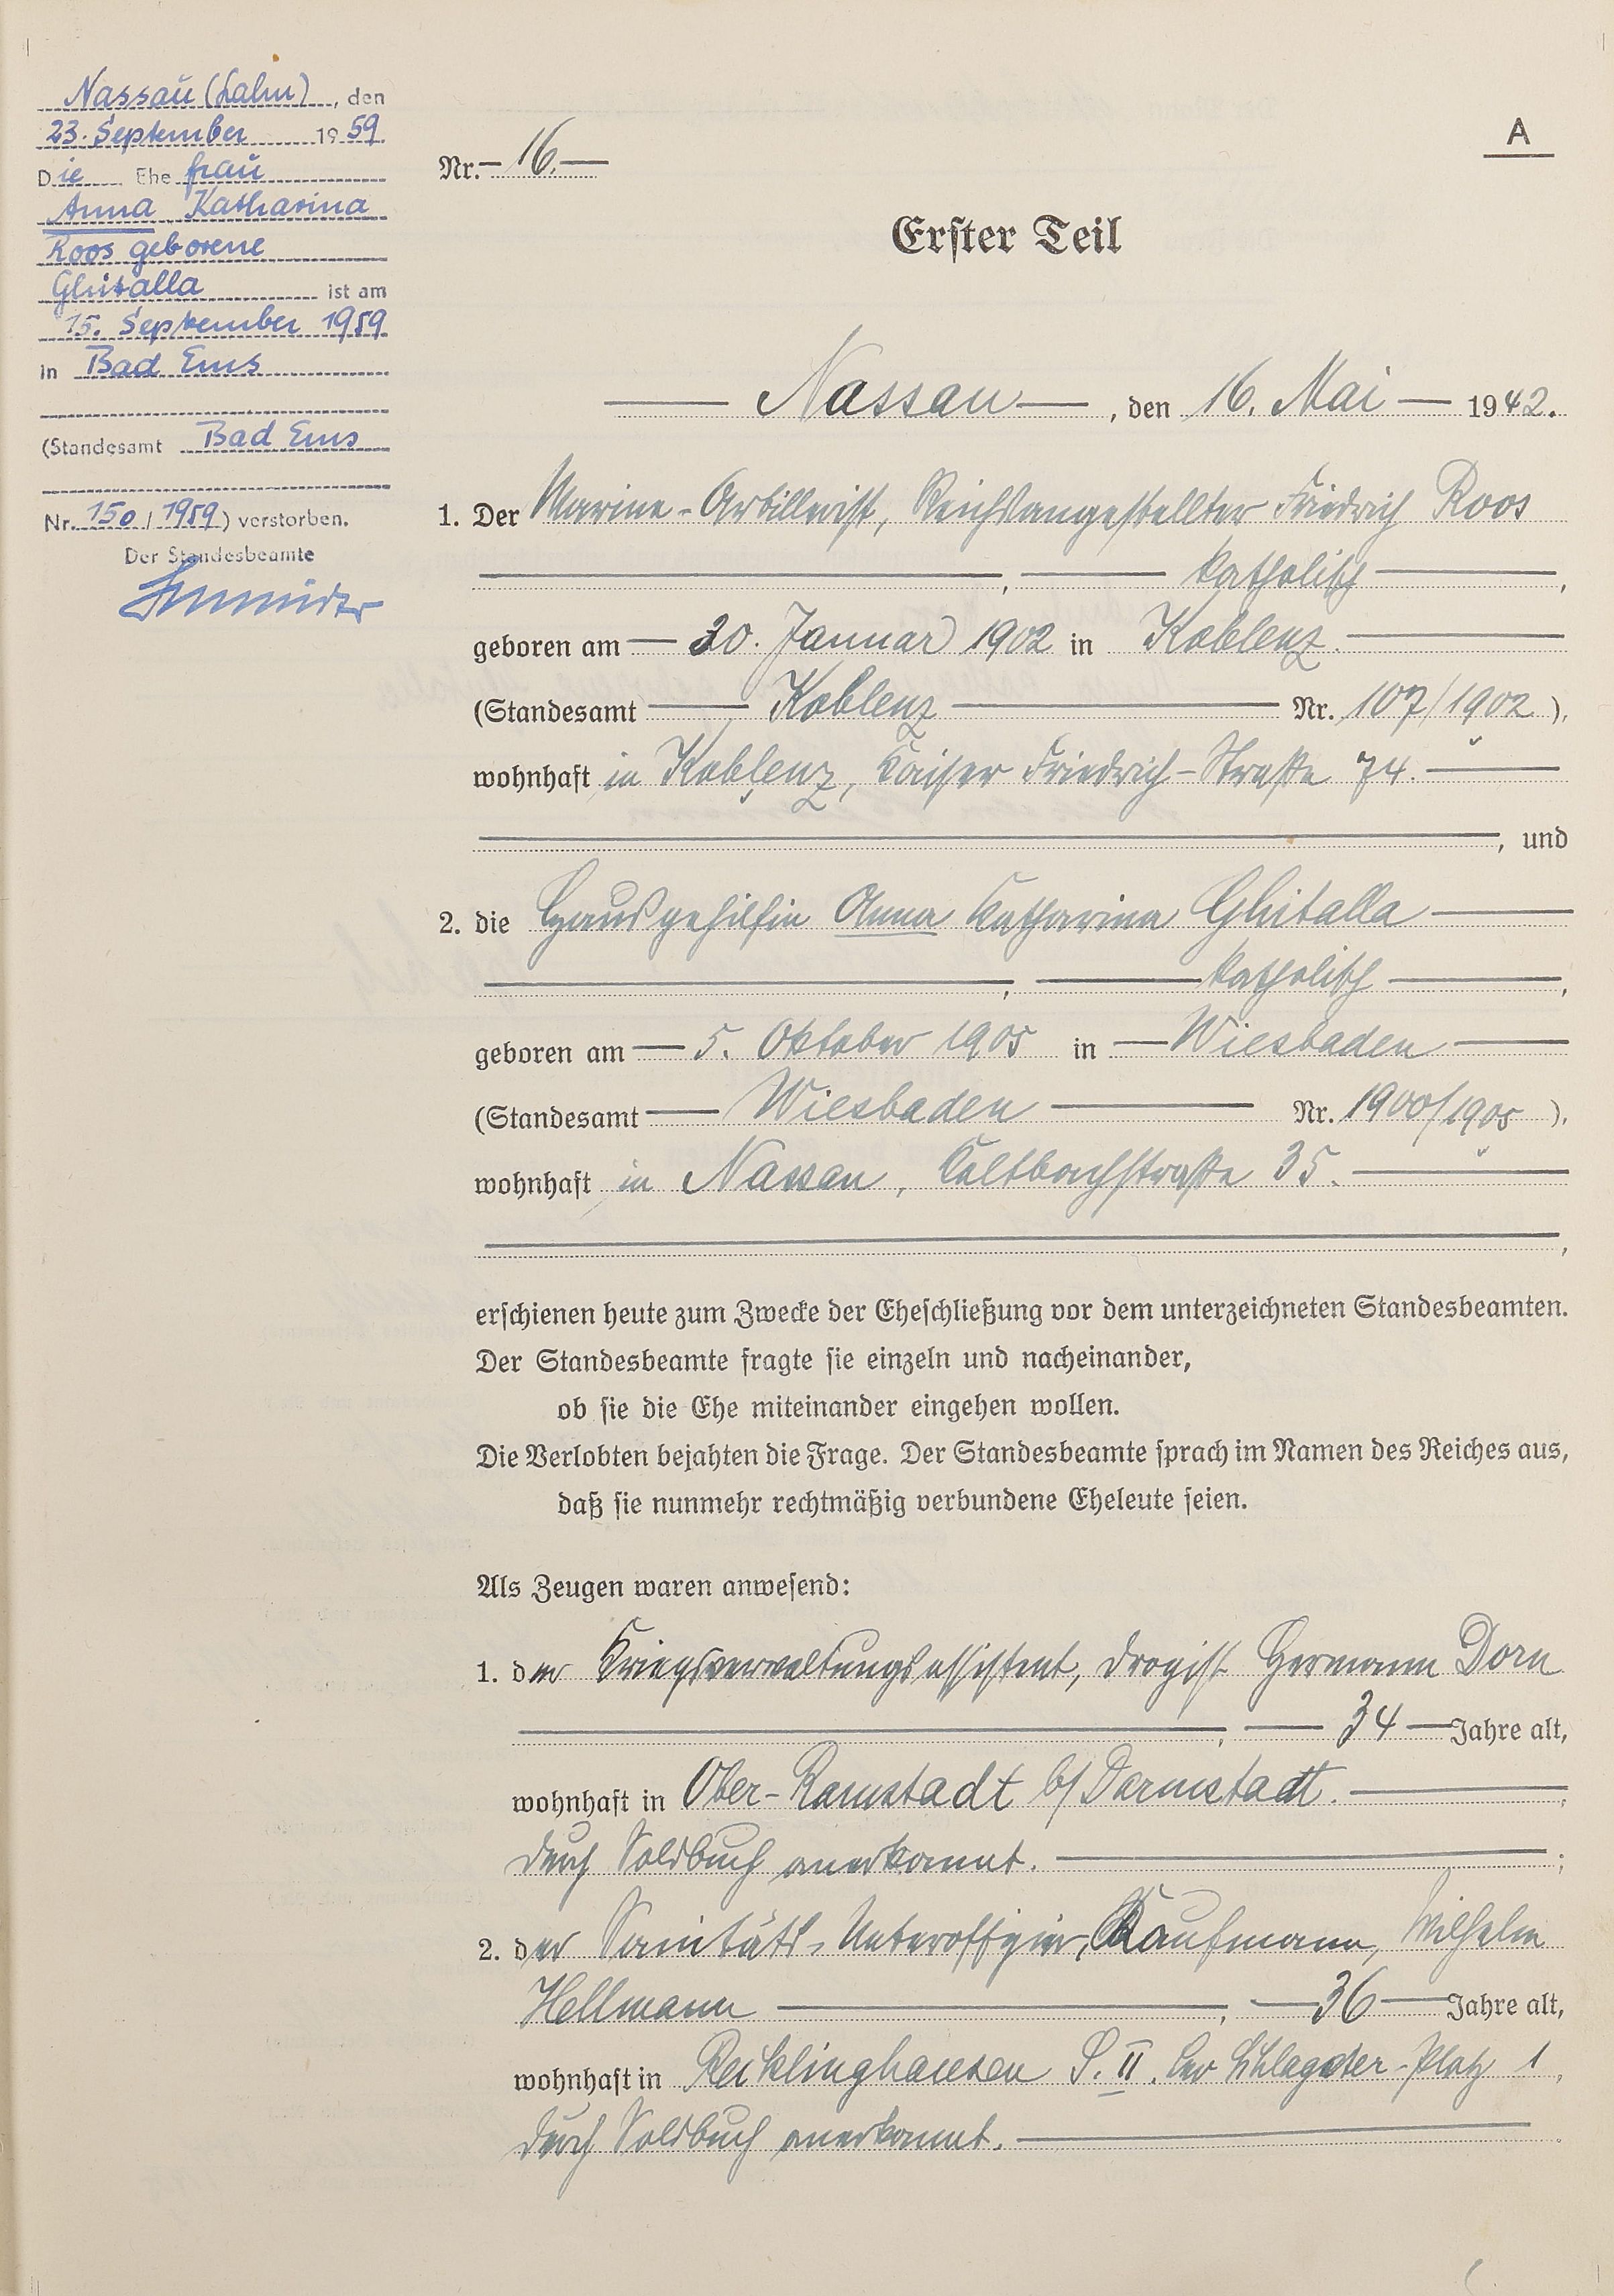 Nassau (Lahn), den
23. September 1959
Die Ehefrau
Anna Katharina
Roos geborene
Ghitalla ist am
15. September 1959
in Bad Ems
(Standesamt Bad Ems
Nr. 150/1959) verstorben.
Der Standesbeamte
A
Nr. 16.
Erster Teil
Nassau, den 16. Mai 1942.
1. Der Marine-Artillerist, Reichsangestellter Friedrich Roos
, katholisch,
geboren am 30. Januar 1902 in Koblenz.
(Standesamt Koblenz Nr. 107/1902),
wohnhaft in Koblenz, Kaiser Friedrich-Straße 74.
, und
2. die Hausgehilfin Anna Katharina Ghitalla
, katholisch,
geboren am 5. Oktober 1905 in Wiesbaden
(Standesamt Wiesbaden Nr. 1900/1905),
wohnhaft in Nassau, Kaltbachstraße 35.
,
erschienen heute zum Zwecke der Eheschließung vor dem unterzeichneten Standesbeamten.
Der Standesbeamte fragte sie einzeln und nacheinander,
ob sie die Ehe miteinander eingehen wollen.
Die Verlobten bejahten die Frage. Der Standesbeamte sprach im Namen des Reiches aus,
daß sie nunmehr rechtmäßig verbundene Eheleute seien.
Als Zeugen waren anwesend:
1. der Kriegsverwaltungsassistent, Drogist Hermann Dorn
, 34 Jahre alt,
wohnhaft in Ober-Ramstadt b/Darmstadt.
durch Soldbuch anerkannt. ;
2. der Sanitäts-Unteroffizier, Kaufmann, Wilhelm
Hellmann, 36 Jahre alt,
wohnhaft in Recklinghausen S. II. Leo Schlageter-Platz 1,
durch Soldbuch anerkannt.